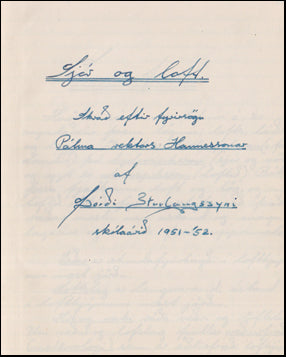 Sjór og loft.
Skráð eftir fyrirsögn
Pálma rektors Hannessonar
af
Þórði Sturlaugssyni
skólaárið 1951-'52.